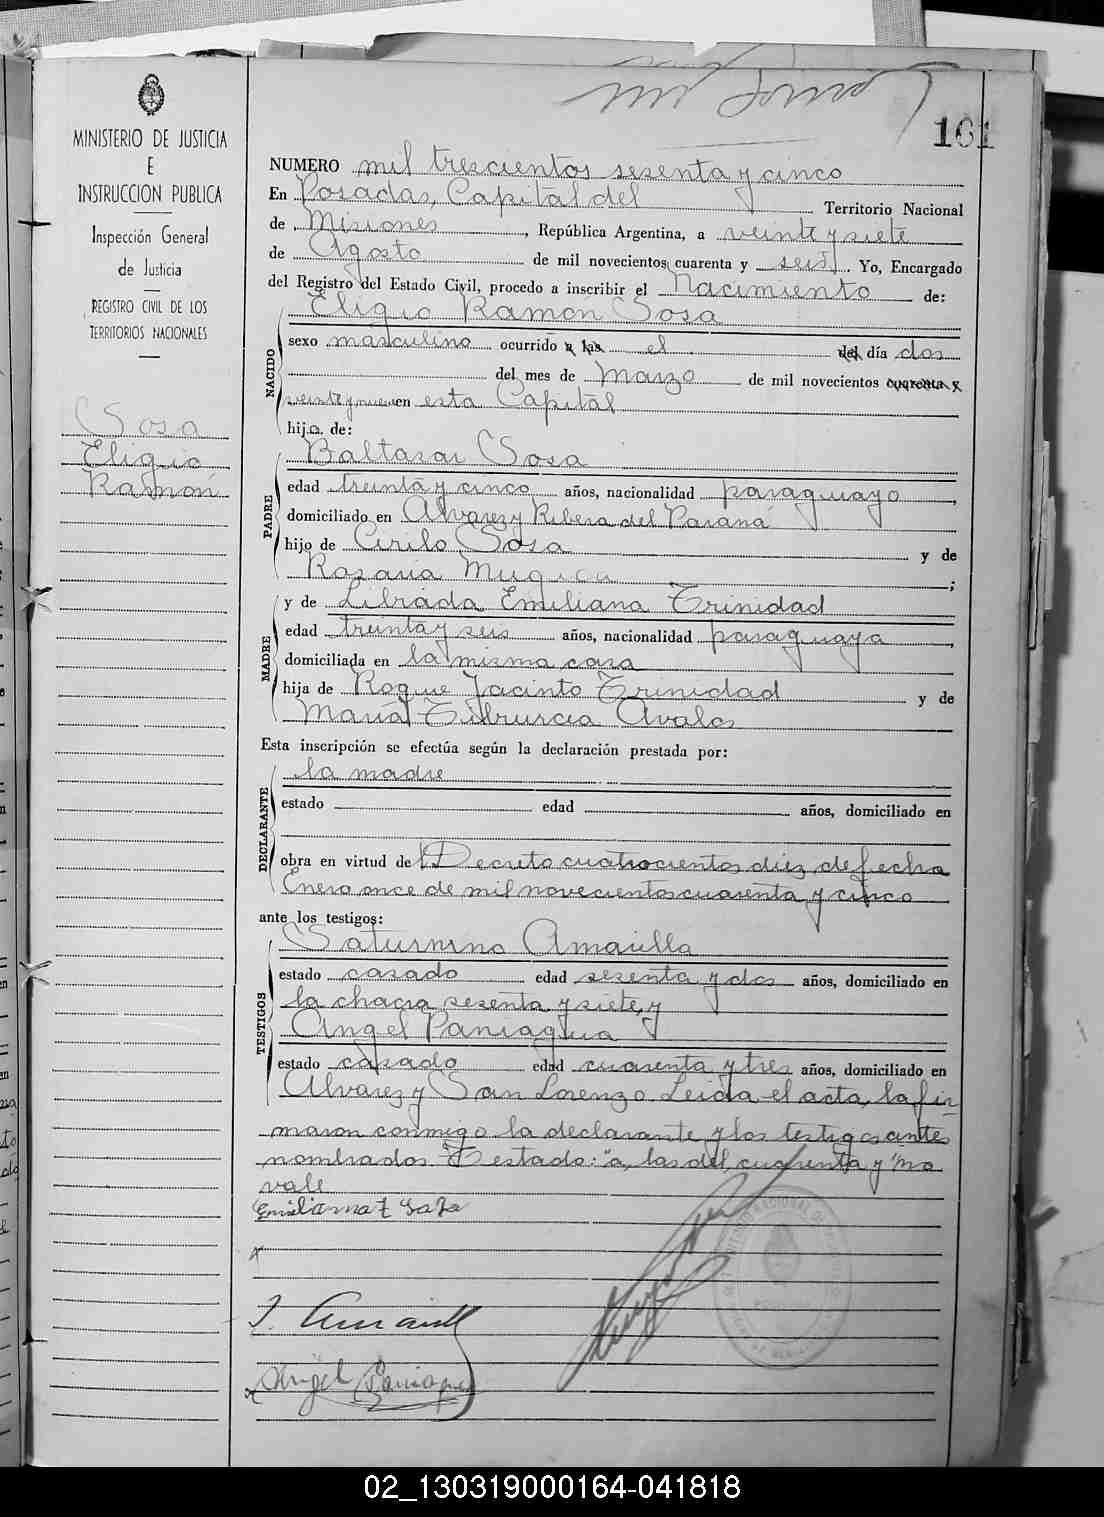 161
MINISTERIO DE JUSTICIA
E
INSTRUCCION PUBLICA
Inspección General
de Justicia
REGISTRO CIVIL DE LOS
TERRITORIOS NACIONALES
Sosa
Eligio
Ramón
NUMERO mil trescientos sesenta y cinco
En Posadas, Capital del Territorio Nacional
de Misiones, República Argentina, a veinte y siete
de Agosto de mil novecientos cuarenta y seis. Yo, Encargado
del Registro del Estado Civil, procedo a inscribir el Nacimiento de:
Eligio Ramón Sosa
NACIDO
sexo masculino ocurrido a las el del día dos
del mes de Marzo de mil novecientos cuarenta y
veinte y nueve en esta Capital
hijo de:
Baltasar Sosa
PADRE
edad treinta y cinco años, nacionalidad paraguayo,
domiciliado en Alvarez y Ribera del Paraná
hijo de Cirilo Sosa y de
Rosaria Mugica;
y de Librada Emiliana Trinidad
MADRE
edad treinta y seis años, nacionalidad paraguaya,
domiciliada en la misma casa
hija de Roque Jacinto Trinidad y de
María Tiburcia Avalos
Esta inscripción se efectúa según la declaración prestada por:
la madre
DECLARANTE
estado edad años, domiciliado en
obra en virtud de Decreto cuatrocientos diez de fecha
Enero once de mil novecientos cuarenta y cinco
ante los testigos:
Saturnino Amarilla
TESTIGOS
estado casado edad sesenta y dos años, domiciliado en
la chacra sesenta y siete, y
Angel Paniagua
estado casado edad cuarenta y tres años, domiciliado en
Alvarez y San Lorenzo. Leida el acta, la fir
maron conmigo la declarante y los testigos antes
nombrados. Testado: "a las del, cuarenta y" no
vale
S. Amarilla
Angel Paniagua
02_130319000164-041818